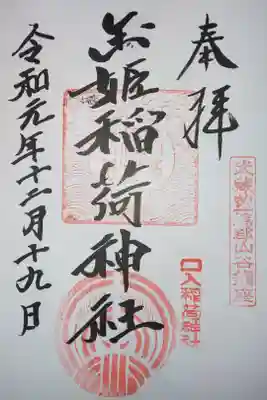 奉拝
玉姫稲荷神社
令和元年十二月十九日
口入稲荷神社